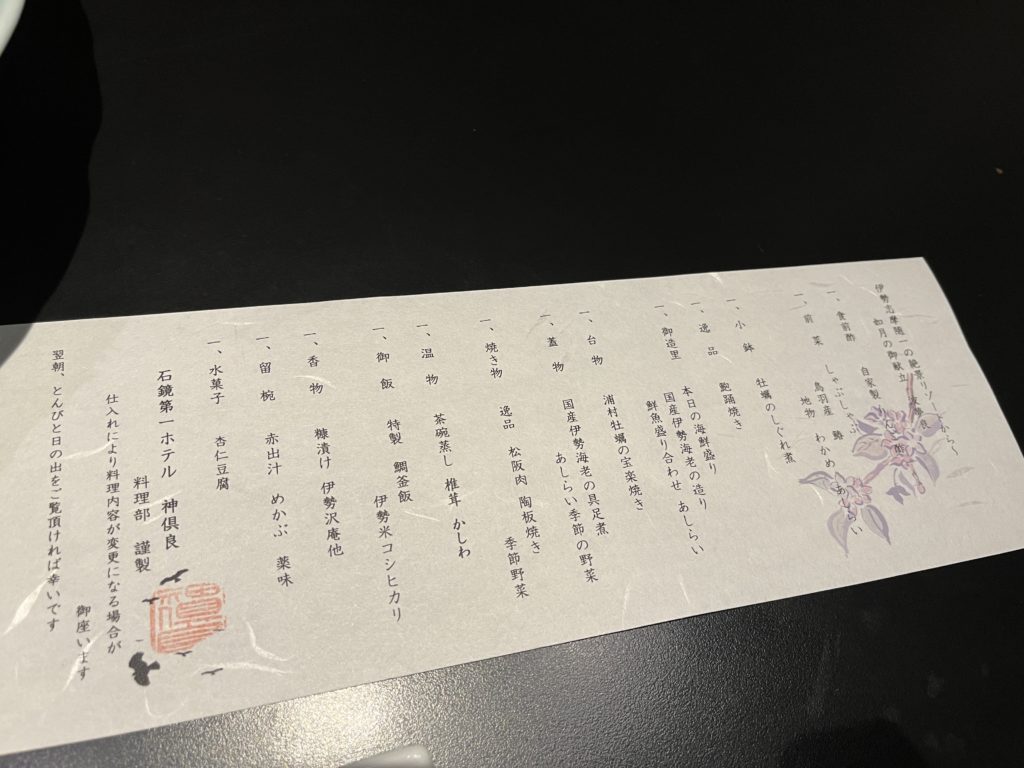 伊勢志摩随一の絶景リゾートから〜
如月の御献立
一、食前酢 自家製 りんご酢
一、前菜 しゃぶしゃぶ
鳥羽産 鰆
地物 わかめ あしらい
一、小鉢 牡蠣のしぐれ煮
一、逸品 鮑踊焼き
一、御造里 本日の海鮮盛り
国産伊勢海老の造り
鮮魚盛り合わせ あしらい
一、台物 浦村牡蠣の宝楽焼き
一、蓋物 国産伊勢海老の具足煮
あしらい季節の野菜
一、焼き物 逸品 松阪肉 陶板焼き
季節野菜
一、温物 茶碗蒸し 椎茸 かしわ
一、御飯 特製 鯛釜飯
伊勢米コシヒカリ
一、香物 糠漬け 伊勢沢庵他
一、留椀 赤出汁 めかぶ 薬味
一、水菓子 杏仁豆腐
石鏡第一ホテル 神倶良
料理部 謹製
仕入れにより料理内容が変更になる場合が
御座います
翌朝、とんびと日の出をご覧頂ければ幸いです